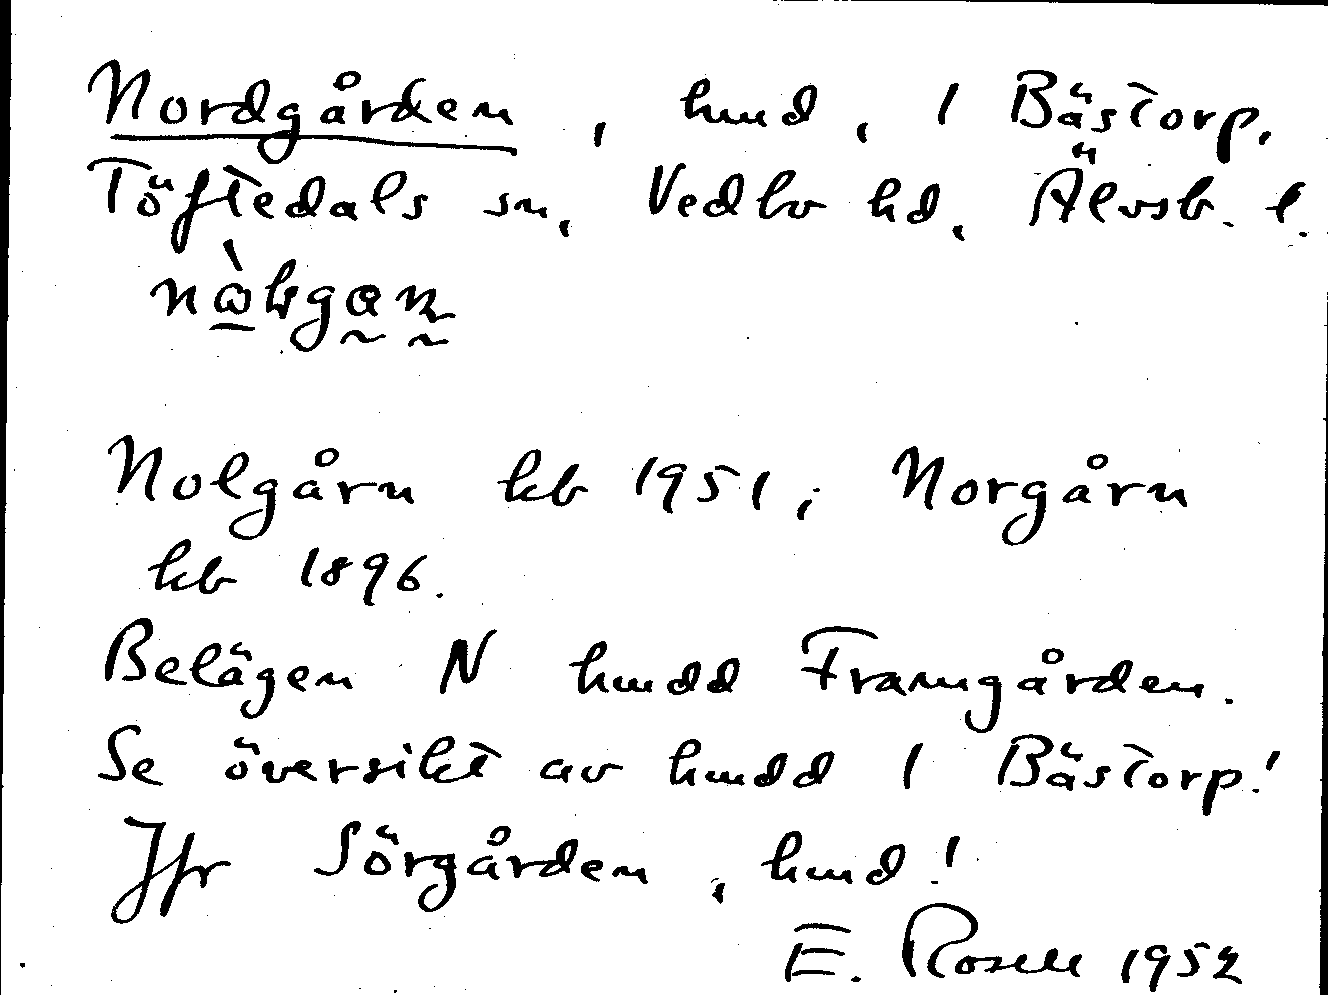 Nordgården, hmd, 1 Bästorp,
Töftedals sn, Vedbo hd, Älvsb. l.
Nolgårn kb 1951; Norgårn
kb 1896.
Belägen N hmdd Framgården.
Se översikt av hmdd 1 Bästorp!
Jfr Sörgården, hmd!
E. Rosell 1952